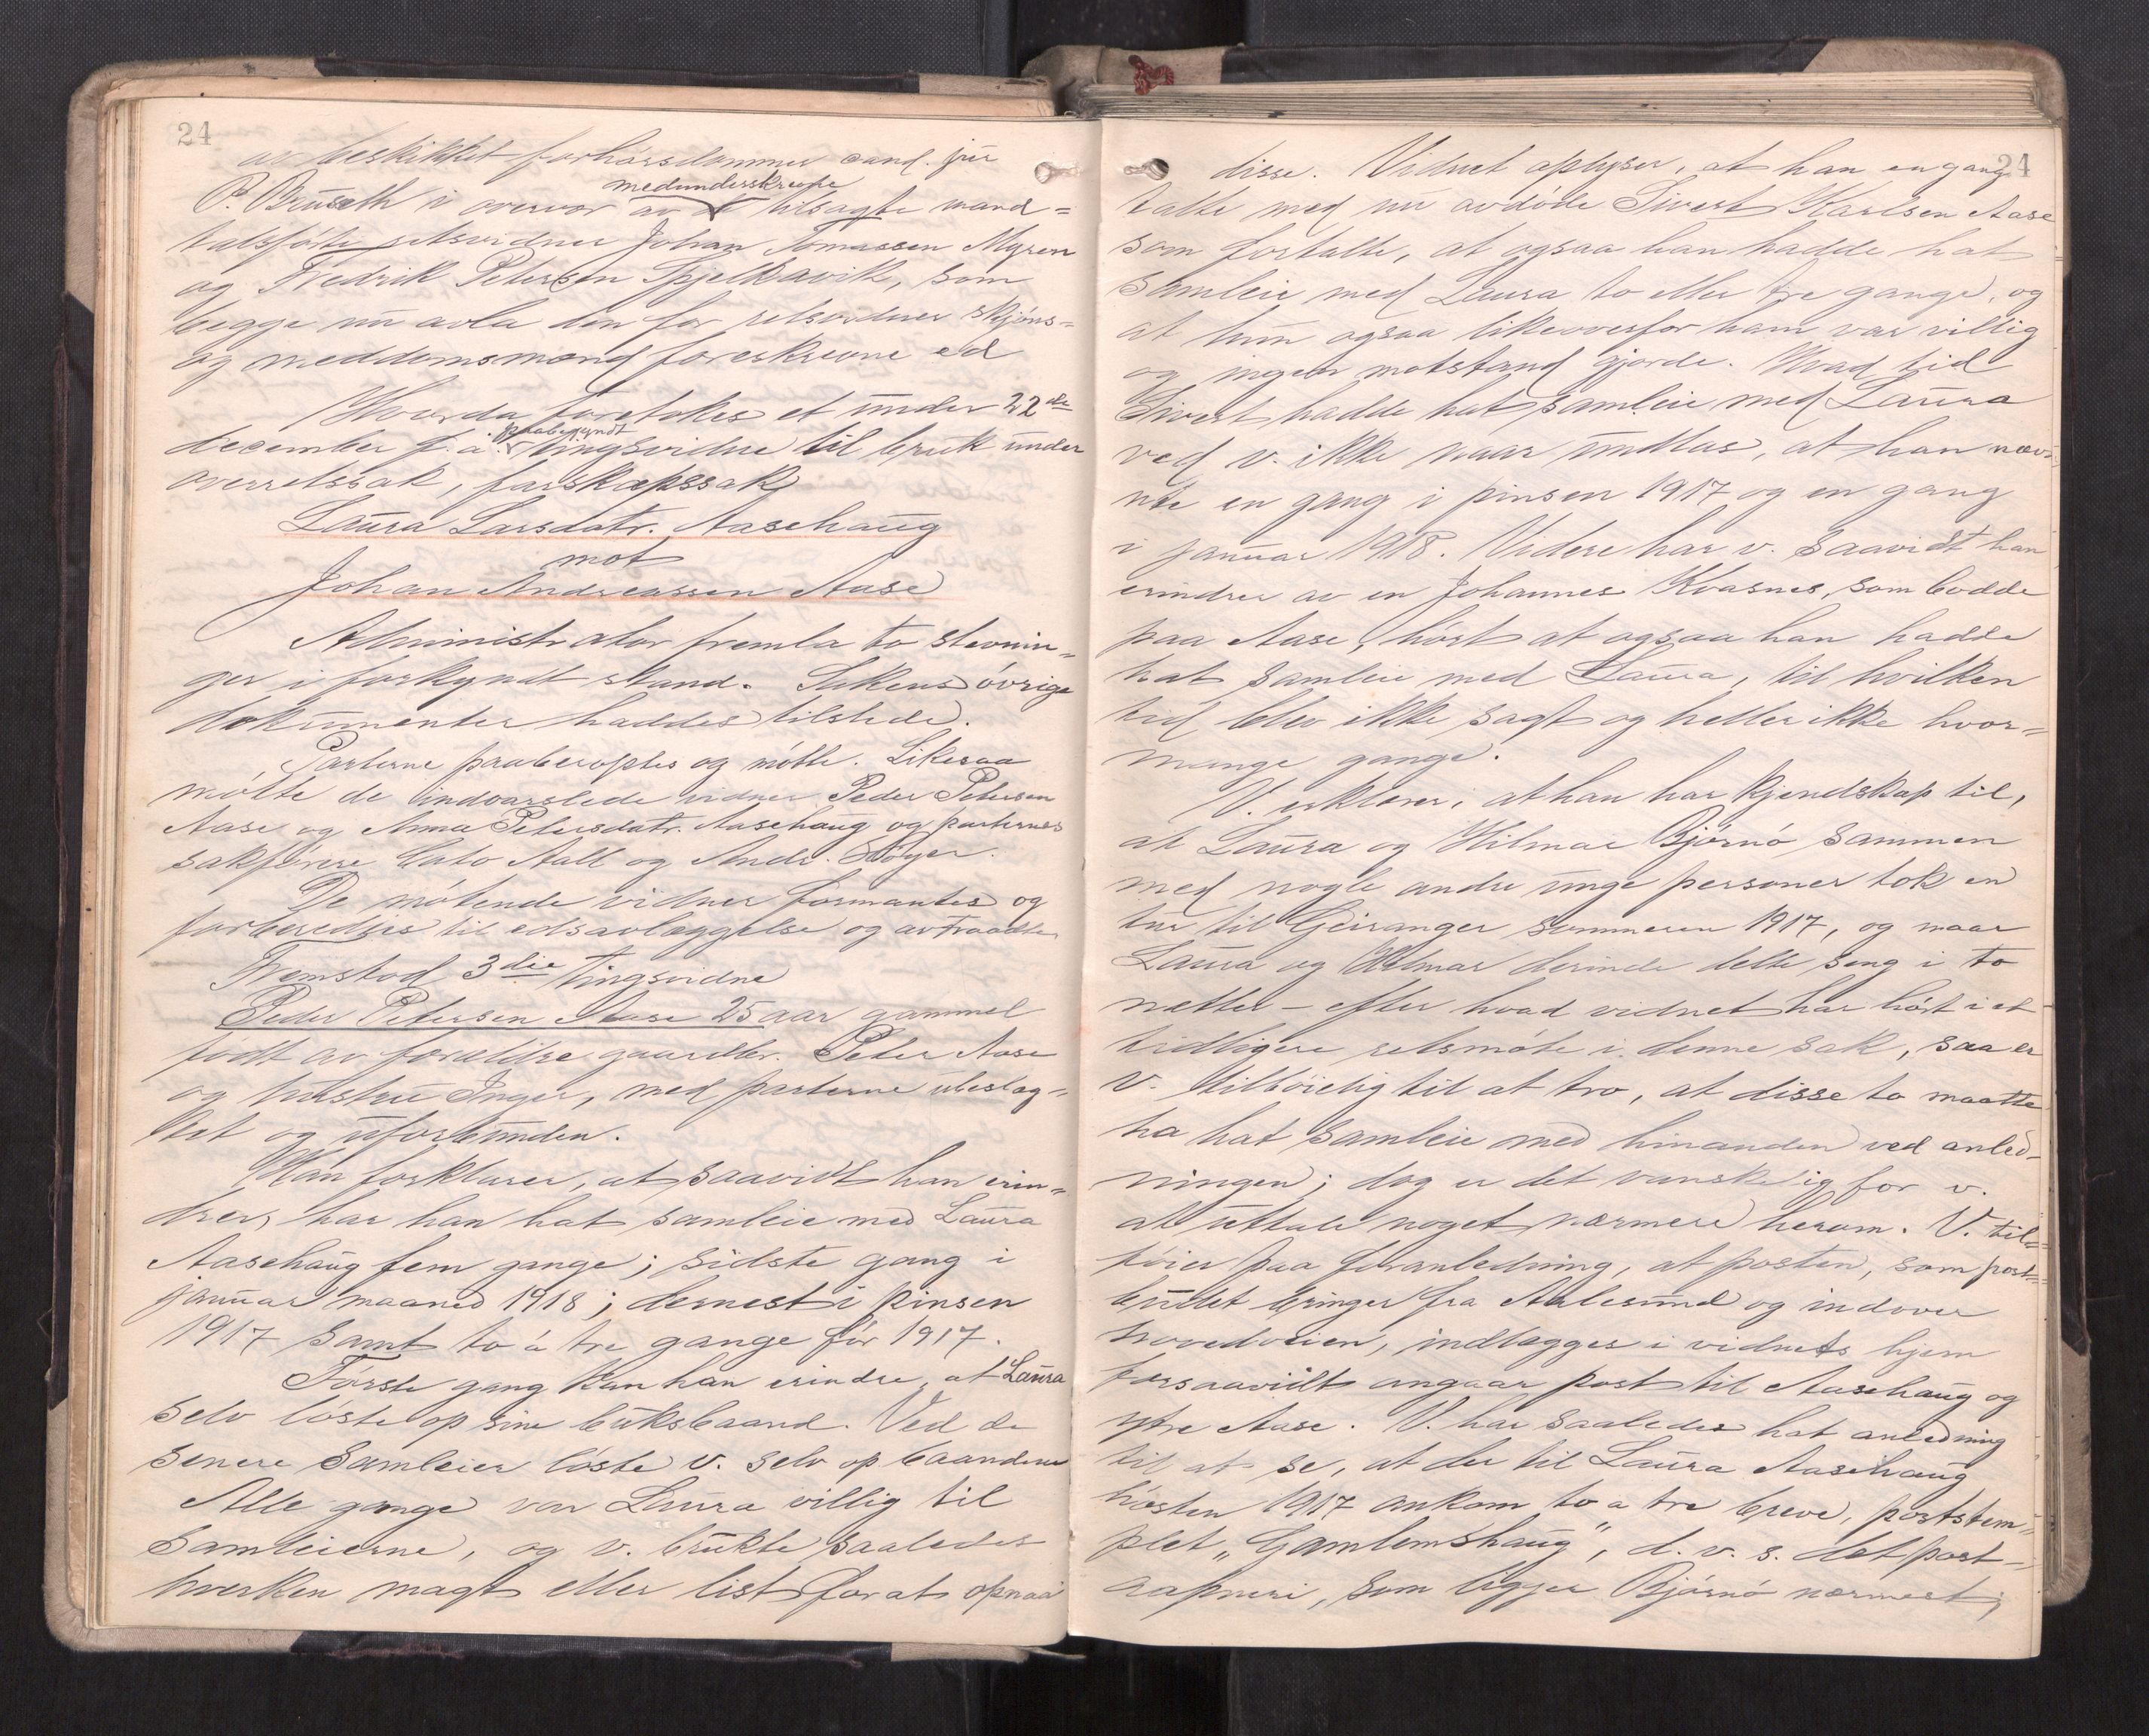 24
av beskikket forhørsdommer cand. jur
P. Brüseth i overvær av de medunderskrevne tilsagte mand=
talsførte retsvidner Johan Tomassen Myren
og Fredrik Petersen Spjelkavik, som
begge nu avla den for retsvidner skjøns=
og meddomsmænd foreskrevne ed
Hvorda foretokes et under 22de
december f. å. paabegyndt tingsvidne til bruk under
overretssak, farskapssak
Laura Larsdatr. Aasehaug
mot
Johan Andreassen Aase
Administrator fremla to stevnin=
ger i forkyndt stand. Sakens øvrige
dokumenter haddes tilstede.
Parterne paaberoptes og møtte. Likesaa
møtte de indvarslede vidner Peder Petersen
Aase og Anna Petersdatr. Aasehaug og parternes
sakførere Cato Aall og Andr. Røyer.
De møtende vidner formantes og
forberedtes til edsavlæggelse og avtraadte
Fremstod 3die tingsvidne
Peder Petersen Aase 25 aar gammel
født av forældre gaardbr. Peter Aase
og hustru Inger, med parterne ubeslæg=
tet og uforbunden.
Han forklarer, at saavidt han erin=
drer, har han hat samleie med Laura
Aasehaug fem gange; sidste gang i
januar maaned 1918; dernest i pinsen
1917 samt to á tre gange før 1917.
Første gang kan han erindre, at Laura
selv løste op sine buksbaand. Ved de
senere samleier løste v. selv op baandene
Alle gange var Laura villig til
samleierne, og v. brukte saaledes
hverken magt eller list for at opnaa
24
disse. Vidnet oplyser, at han engang
talte med nu avdøde Sivert Karlsen Aase
som fortalte, at ogsaa han hadde hat
samleie med Laura to eller tre gange, og
at hun ogsaa likeoverfor ham var villig
og ingen motstand gjorde. Hvad tid
Sivert hadde hat samleie med Laura
ved v. ikke naar undtas, at han nævn
nte en gang i pinsen 1917 og en gang
i januar 1918. Videre har v. saavidt han
erindrer av en Johannes Kvasnes, som bodde
paa Aase, hørt at ogsaa han hadde
hat samleie med Laura, til hvilken
tid blev ikke sagt og heller ikke hvor=
mange gange.
V. erklærer, at han har kjendskap til,
at Laura og Hilmar Bjørnø sammen
med nogle andre unge personer tok en
tur til Geiranger sommeren 1917, og naar
Laura og Hilmar derinde delte seng i to
nætter – efter hvad vidnet har hørt i et
tidligere retsmøte i denne sak, saa er
v. tilbøielig til at tro, at disse to maatte
ha hat samleie med hinanden ved anled=
ningen; dog er det vanskelig for v.
at uttale noget nærmere herom. V. til=
føier paa foranledning, at posten, som post=
budet bringer fra Aalesund og indover
hovedveien, indlægges i vidnets hjem
forsaavidt angaar post til Aasehaug og
ytre Aase. V. har saaledes hat anledning
til at se, at der til Laura Aasehaug
høsten 1917 ankom to a tre breve, poststem=
plet „Gamlemshaug", d. v. s. det post=
aapneri, som ligger Bjørnø nærmest;